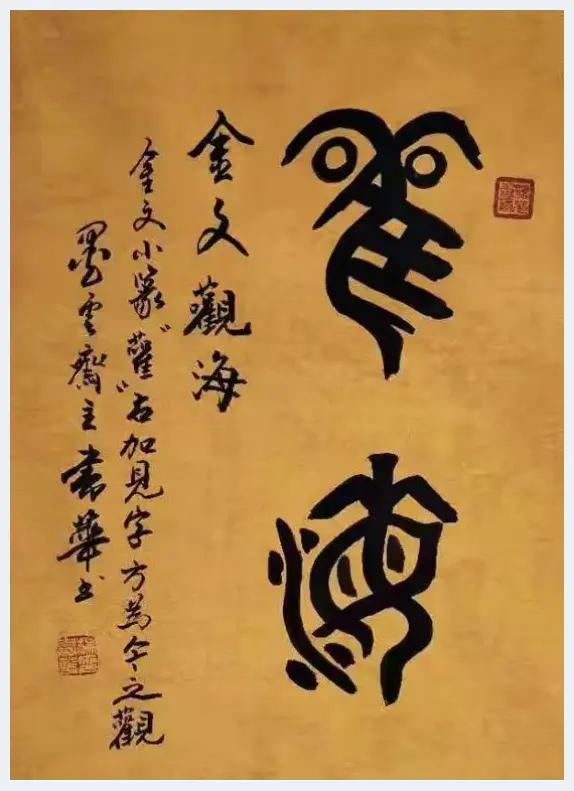 雚海
金文觀海
金文小篆“雚”右加見字方為今之觀
墨雲齋主袁華书